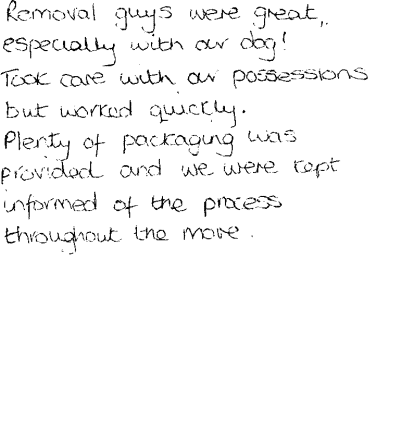 Removal guys were great,
especially with our dog!
Took care with our possessions
but worked quickly.
Plenty of packaging was
provided and we were kept
informed of the process
throughout the move.